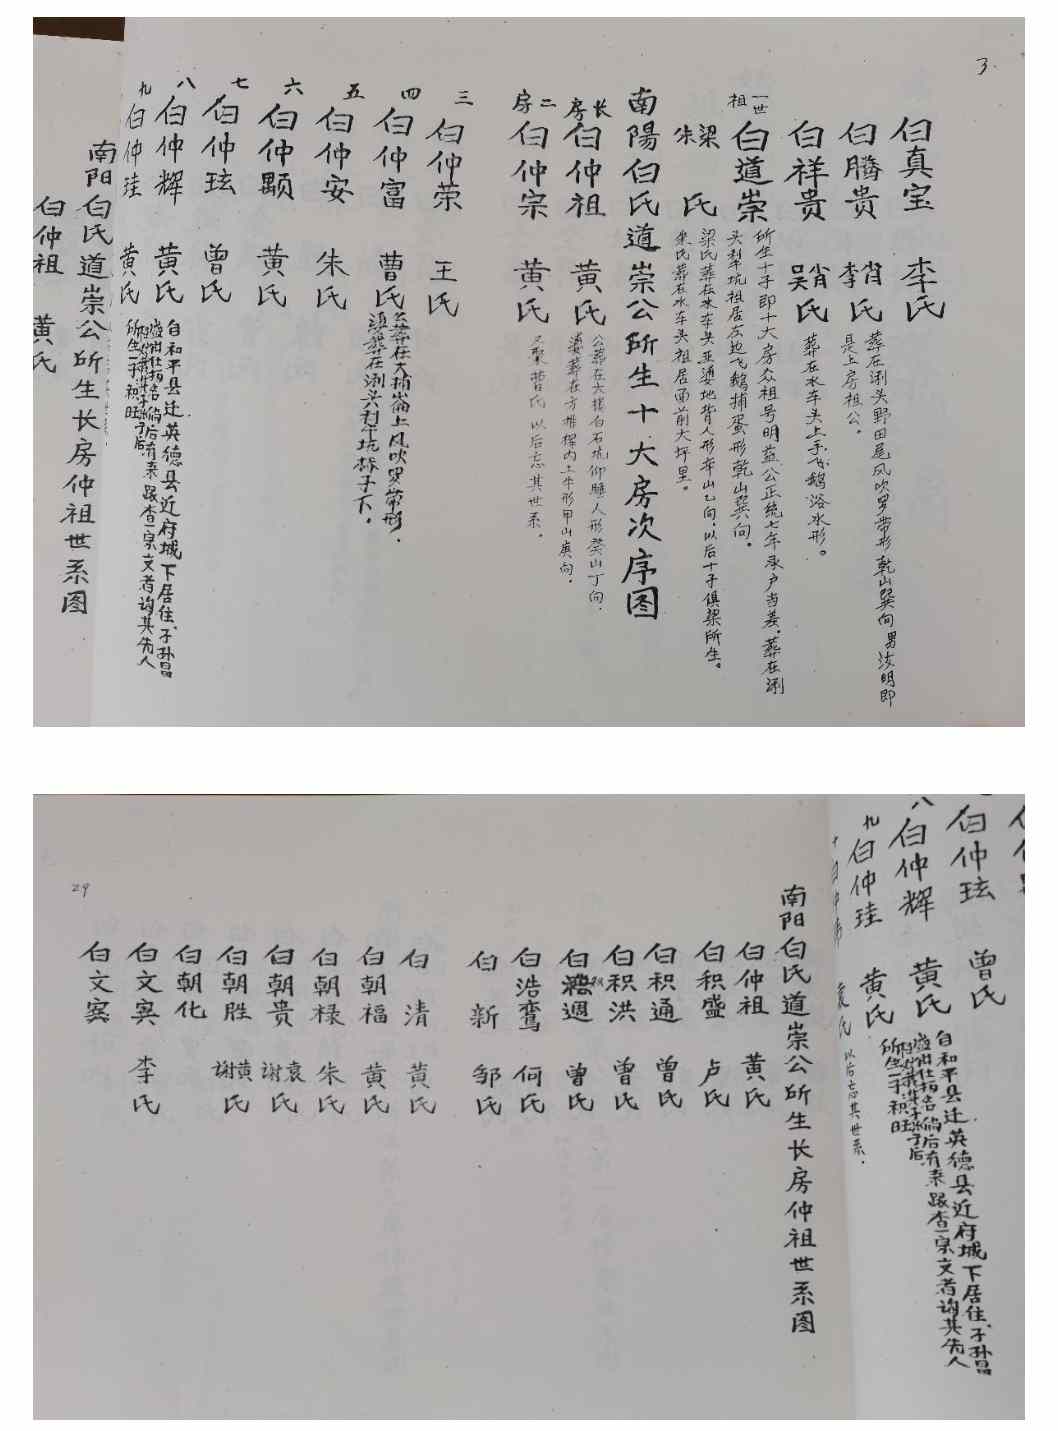 3.
白真宝 李氏
白腾贵 肖 李氏 葬在浰头野田尾风吹罗带形乾山巽向男汝明即
是上房祖公。
白祥贵 肖 吴氏 葬在水车头上手飞鹅浴水形。
一世祖 白道崇 所生十子即十大房众祖号明益公正统七年承户当差,葬在浰
头犁坑祖居左边飞鹅捕蛋形乾山巽向。
梁 朱 氏 梁氏葬在水车头亚婆地背人形辛山乙向,以后十子俱梁所生。
朱氏葬在水车头祖居面前大坪里。
南陽白氏道崇公所生十大房次序图
长房 白仲祖 黄氏 公葬在大楼白石坑仰睡人形癸山丁向.
婆葬在方堆楼内上牛形甲山庚向.
二房 白仲宗 黄氏 又娶曹氏 以后忘其世系.
三 白仲荣 王氏
四 白仲富 曹氏 公葬在大捕崙上风吹罗带形.
婆葬在浰头犁坑杉子下.
五 白仲安 朱氏
六 白仲顯 黄氏
七 白仲玹 曾氏
八 白仲辉 黄氏 自和平县迁英德县近府城下居住,子孙昌
后有来跟查一宗文者询其先人
所生一子积旺
九 白仲珪 黄氏
南阳白氏道崇公所生长房仲祖世系图
白仲祖 黄氏
八 白仲玹 曾氏
白仲辉 黄氏 自和平县迁英德县近府城下居住,子孙昌
后有来跟查一宗文者询其先人
所生一子积旺
九 白仲珪 黄氏
十 白仲 袁氏 以后忘其世系.
29
南阳白氏道崇公所生长房仲祖世系图
白仲祖 黄氏
白积盛 卢氏
白积通 曾氏
白积洪 曾氏
白 週 曾氏
白浩鸾 何氏
白新 邹氏
白清 黄氏
白朝福 黄氏
白朝禄 朱氏
白朝贵 袁 谢氏
白朝胜 黄 谢氏
白朝化
白文寅 李氏
白文寀